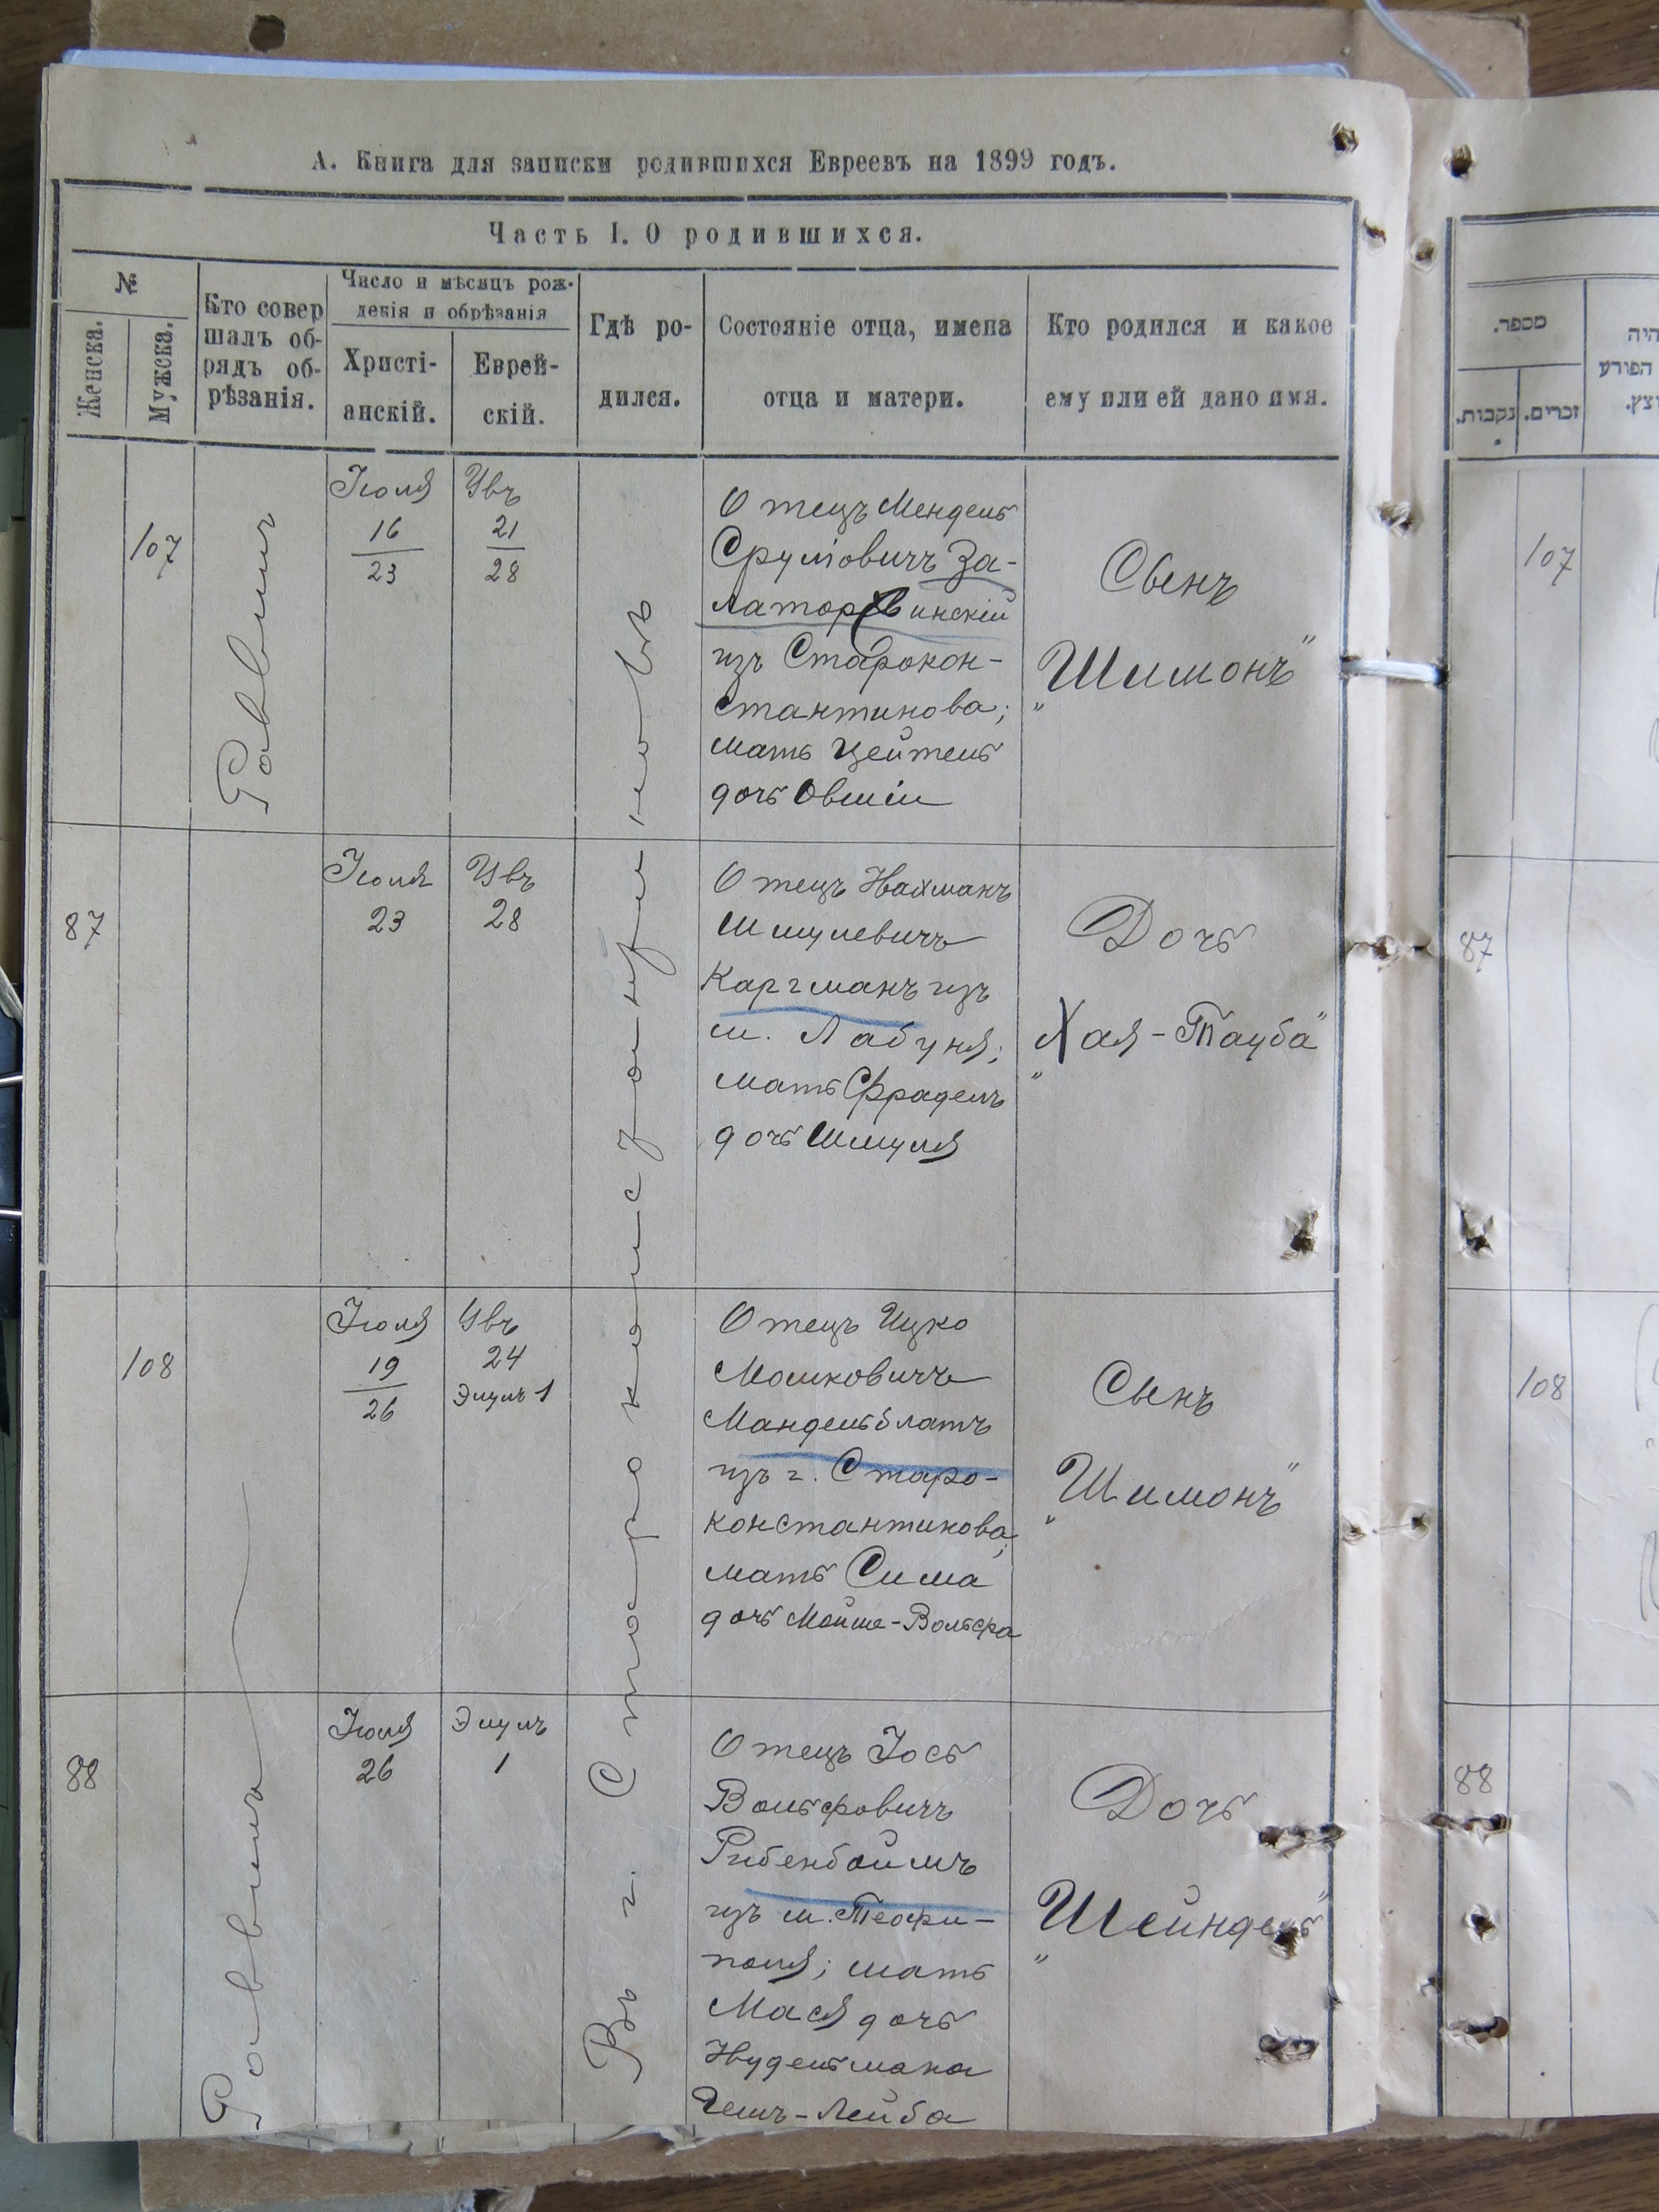 А. Книга для записки родившихся Евреевъ на 1899 годъ.
Часть I. О родившихся.
№
Женска.
Мужска.
Кто совер
шалъ об-
рядъ об-
рѣзанія.
Число и мѣсяцъ рож-
денія и обрѣзанія
Христі-
анскій.
Еврей-
скій.
Гдѣ ро-
дился.
Состояніе отца, имена
отца и матери.
Кто родился и какое
ему или ей дано имя.
Въ г. Староконстантиновѣ
107
Раввинъ
Іюля
16
23
Увъ
21
28
Отецъ Мендель
Сруліовичъ За-
из Старокон-
стантинова;
мать Цейтель
дочь Овшіи
Сынъ
„Шимонъ“
87
Іюля
23
Увъ
28
Отецъ Нахманъ
Шмулевичъ
Каргманъ изъ
м. Лабуня;
мать Фрадель
дочь Шмуля
Дочь
„Хая-Тауба“
108
Іюля
19
26
Увъ
24
Элулъ 1
Отецъ Ицко
Мошковичъ
Мандельблатъ
изъ г. Старо-
константинова;
мать Сима
дочь Мойше-Вольфа
Сынъ
„Шимонъ“
88
Раввинъ
Іюля
26
Элулъ
1
Отецъ Іось
Вольфовичъ
Рибенбоймъ
изъ м. Теофи-
поля; мать
Мася дочь
Нудельмана
-Лейба
Дочь
„Шейндель“
מספר.
נקבות.
זכרים.
היה
הפורע
107
87
108
88